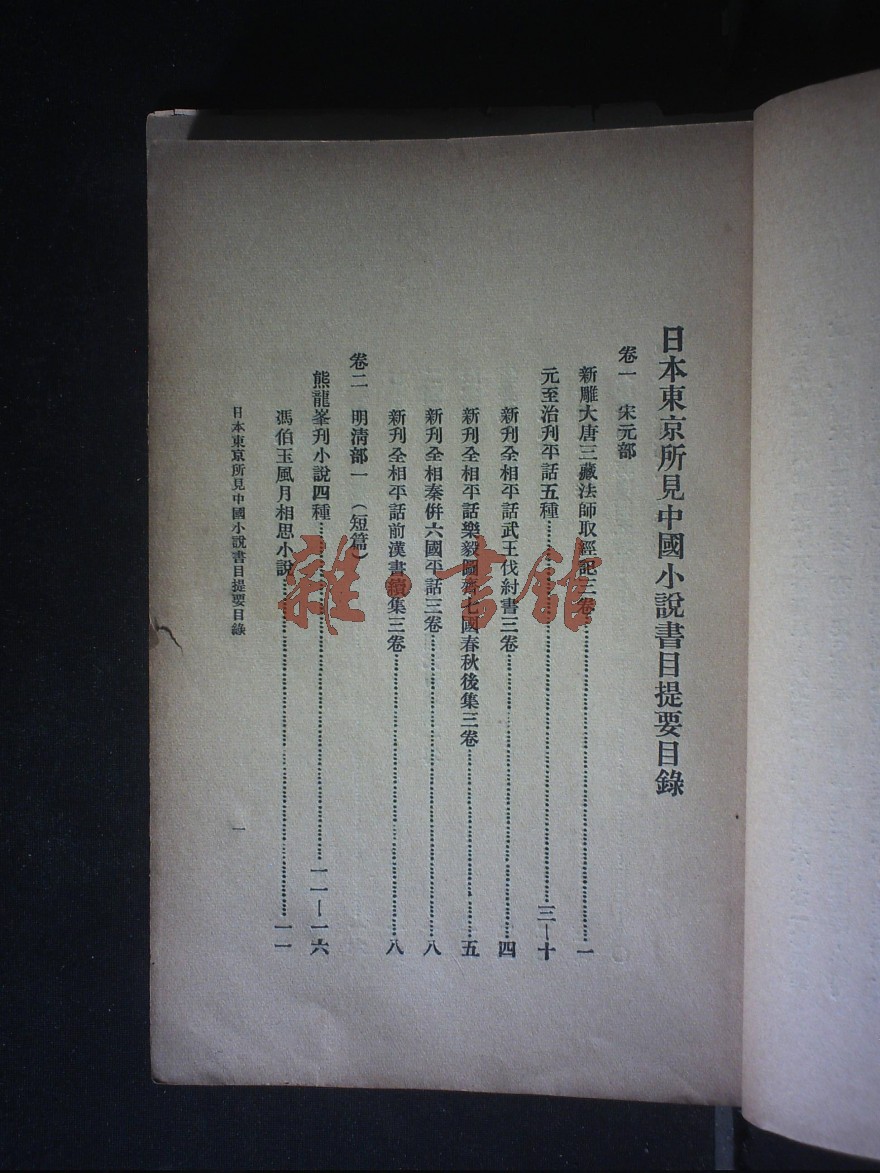 日本東京所見中國小說書目提要目錄
卷一 宋元部
新雕大唐三藏法師取經記三卷……一
元至治刊平話五種……三—十
新刊全相平話武王伐紂書三卷……四
新刊全相平話樂毅圖齊七國春秋後集三卷……五
新刊全相秦併六國平話三卷……八
新刊全相平話前漢書續集三卷……八
卷二 明清部一 (短篇)
熊龍峯刊小說四種……一一—一六
馮伯玉風月相思小說……一一
日本東京所見中國小說書目提要目錄 一
雜·書館